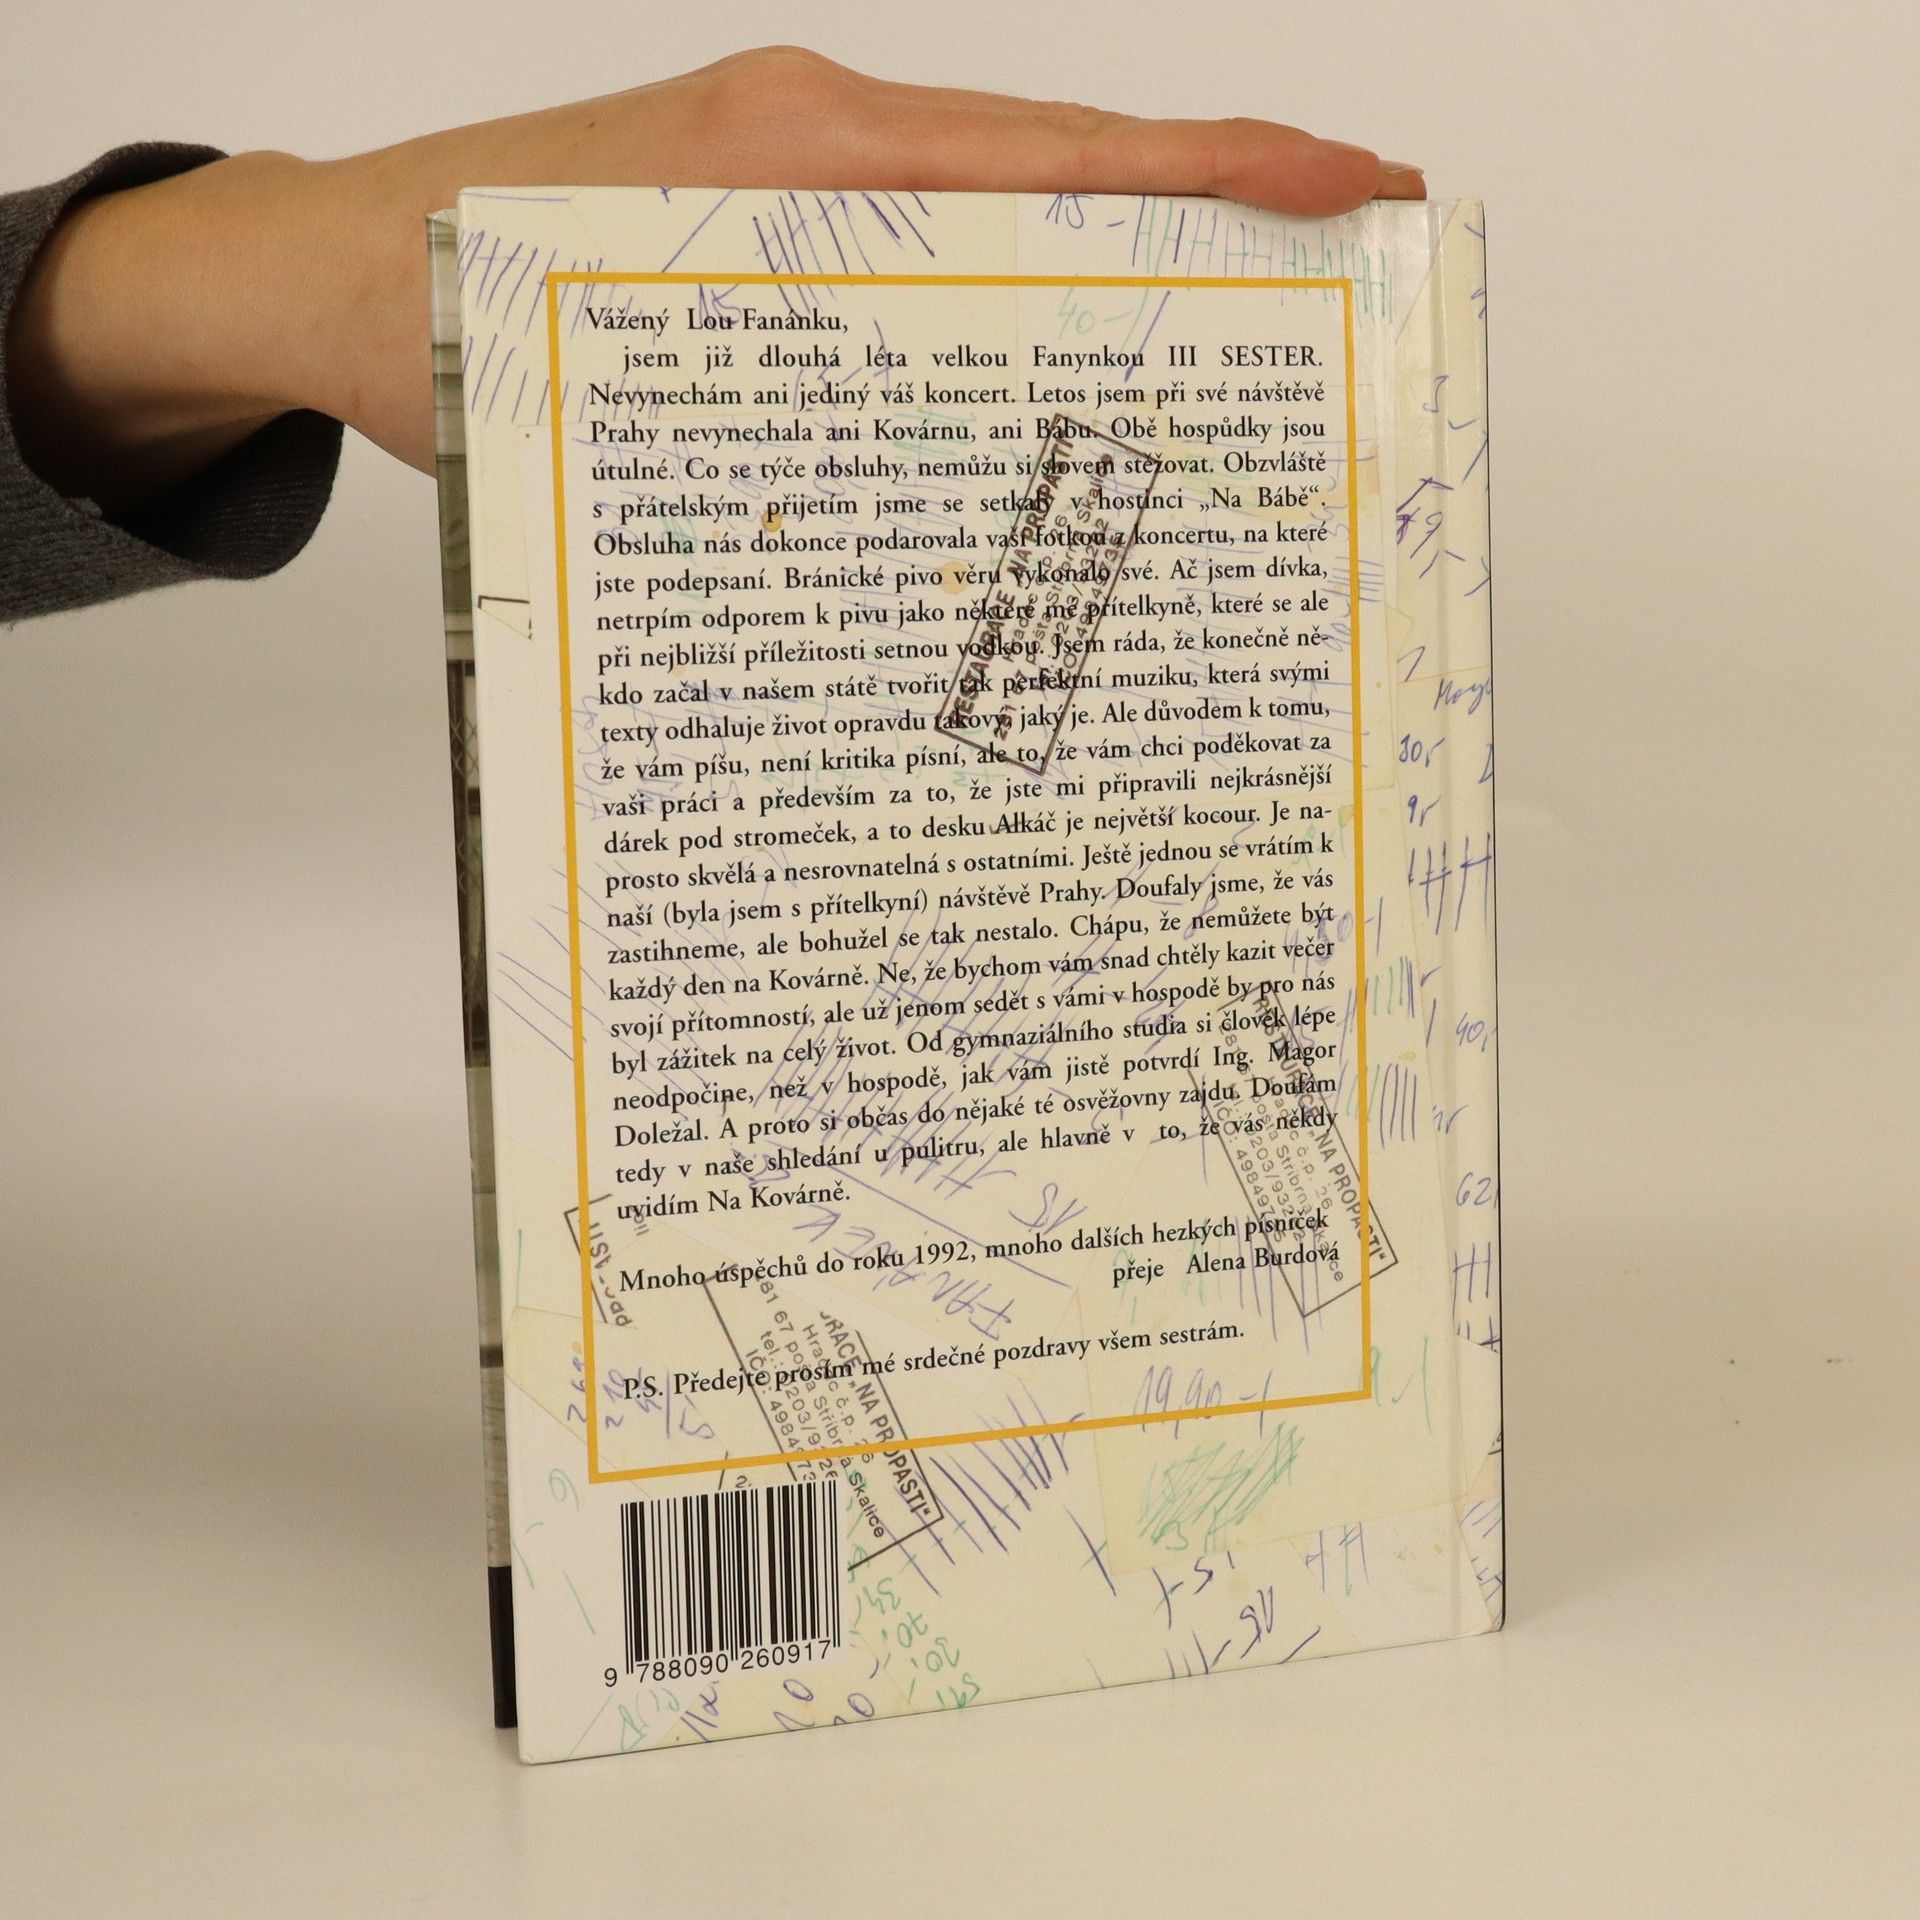 Vážený Lou Fanánku,
jsem již dlouhá léta velkou Fanynkou III SESTER.
Nevynechám ani jediný váš koncert. Letos jsem při své návštěvě
Prahy nevynechala ani Kovárnu, ani Bábu. Obě hospůdky jsou
útulné. Co se týče obsluhy, nemůžu si slovem stěžovat. Obzvláště
s přátelským přijetím jsme se setkaly v hostinci „Na Bábě“.
Obsluha nás dokonce podarovala vaší fotkou z koncertu, na které
jste podepsaní. Bránické pivo věru vykonalo své. Ač jsem dívka,
netrpím odporem k pivu jako některé mé přítelkyně, které se ale
při nejbližší příležitosti setnou vodkou. Jsem ráda, že konečně ně-
kdo začal v našem státě tvořit tak perfektní muziku, která svými
texty odhaluje život opravdu takový, jaký je. Ale důvodem k tomu,
že vám píšu, není kritika písní, ale to, že vám chci poděkovat za
vaši práci a především za to, že jste mi připravili nejkrásnější
dárek pod stromeček, a to desku Alkáč je největší kocour. Je na-
prosto skvělá a nesrovnatelná s ostatními. Ještě jednou se vrátím k
naší (byla jsem s přítelkyní) návštěvě Prahy. Doufaly jsme, že vás
zastihneme, ale bohužel se tak nestalo. Chápu, že nemůžete být
každý den na Kovárně. Ne, že bychom vám snad chtěly kazit večer
svojí přítomností, ale už jenom sedět s vámi v hospodě by pro nás
byl zážitek na celý život. Od gymnaziálního studia si člověk lépe
neodpočine, než v hospodě, jak vám jistě potvrdí Ing. Magor
Doležal. A proto si občas do nějaké té osvěžovny zajdu. Doufám
tedy v naše shledání u pulitru, ale hlavně v to, že vás někdy
uvidím Na Kovárně.
Mnoho úspěchů do roku 1992, mnoho dalších hezkých písniček
přeje Alena Burdová
P.S. Předejte prosím mé srdečné pozdravy všem sestrám.
19,90
9 788090 260917